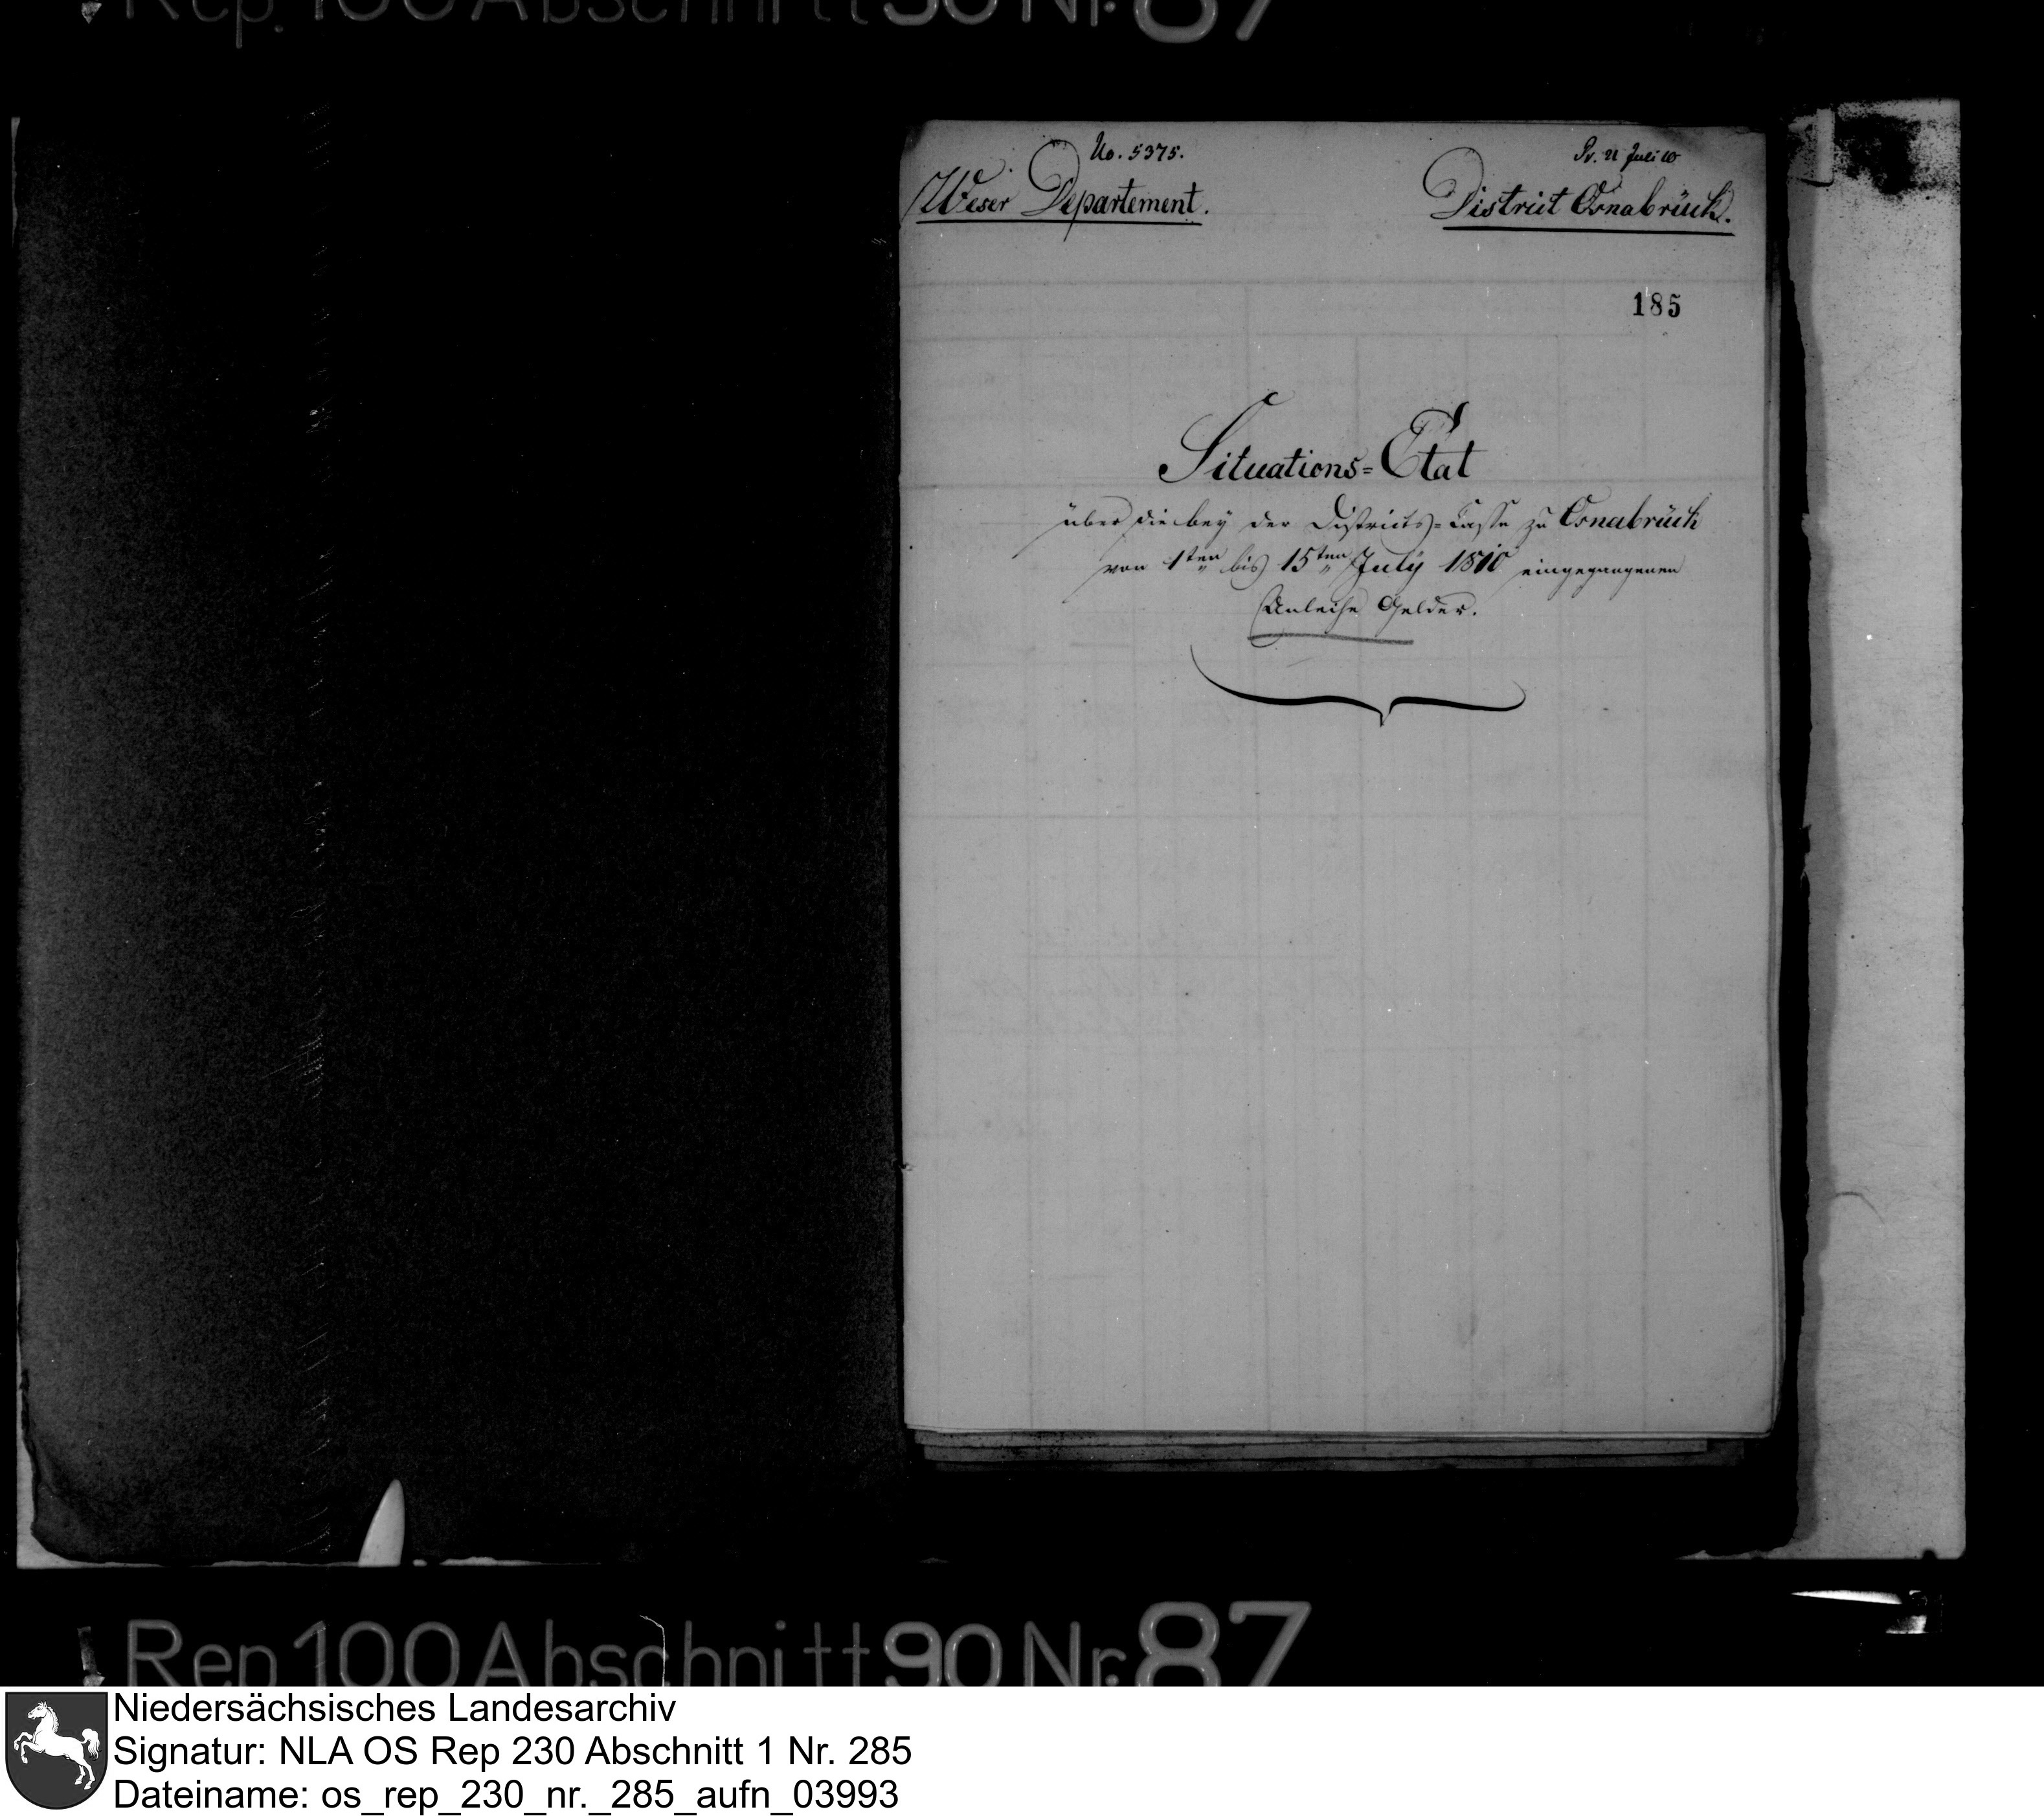 Rep. 100 Abschnitt 90 Nr. 87
No. 5375.
Pr. 21 Juli 10
Weser Departement.
District Osnabrück.
185
Situations=Etat
über die bey der Districts=Casse zu Osnabrück
von 1ten bis 15ten July 1810 eingegangenen
Anleihe Gelder.
Rep 100 Abschnitt 90 Nr. 87
Niedersächsisches Landesarchiv
Signatur: NLA OS Rep 230 Abschnitt 1 Nr. 285
Dateiname: os_rep_230_nr._285_aufn_03993